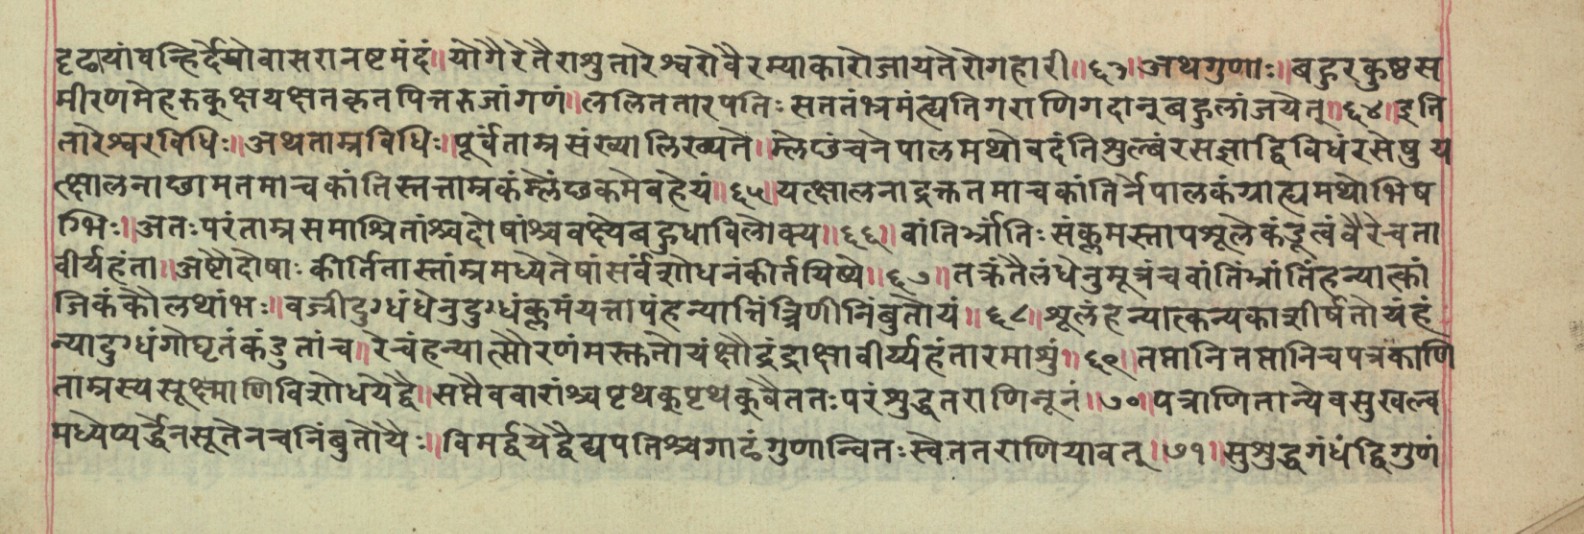 दृढायां वन्हिर्देयो वासरानष्टमंदं॥ योगैरेतैराशु तारेश्वरो वै रम्याकारो जायते रोगहारी॥६३॥ अथगुणाः॥ बहुरकुष्ठस
मीरणमेहरुकूक्षयक्षतकृतपित्तरुजांगणं॥ ललिततारपतिः सततंभ्रमंत्यतिगराणिगदान्बहुलांजयेत्॥६४॥ इति
तारेश्वरविधिः॥ अथताम्रविधिः॥ पूर्वंताम्रसंख्यालिख्यते॥ म्लेछंचनेपालमथोवदंतिशुल्बंरसज्ञाद्विविधंरसेषु य
त्क्षालनाछामतमान्चकांतिस्तत्ताम्रकंम्लेंछकमेवहेयं॥६५॥ यत्क्षालनाद्रक्ततमाचकांतिर्नेपालकंग्राह्यमथोभिष
ग्भिः॥ अतःपरंताम्रसमाश्रितांश्चदोषांश्चवक्ष्येबहुधाविलोक्य॥६६॥ वांतिर्भ्रांतिः संक्लमस्तापशूलेकंडूत्वंवैरेचता
वीर्यहंता॥ अष्टौदोषाः कीर्तितास्तांम्रमध्येतेषांसर्वंशोधनंकीर्तयिष्ये॥६७॥ तक्रंतैलंधेनुमूत्रंचवांतिंभ्रांतिंहन्यात्कां
जिकंकौलथांभः॥ वज्रीदुग्धंधेनुदुग्धंक्लमंयत्तापंहन्यात्तिंत्रिणीनिंबुतोयं॥६८॥ शूलंहन्यात्कन्यकाशीर्षतोयंहं
न्यादुग्धंगोघृतंकंडुतांच॥ रेचंहन्यात्सौरणंमस्तुतोयंक्षौद्रंद्राक्षावीर्य्यहंतारमाशुं॥६९॥ तप्तानितप्तानिचपत्रकाणि
ताम्रस्यसूक्ष्माणिविशोधयेद्वै॥ सप्तैववारांश्चपृथक्पृथक्वैततःपरंशुद्धतराणिनूनं॥७०॥ पत्राणितान्येवसुखल्व
मध्येप्यर्द्धेनसूतेनचनिंबुतोयैः॥ विमर्द्दयेद्वैद्यपतिश्चगाढंगुणान्वितःस्वेततराणियावत्॥७१॥ सुशुद्धगंधंद्विगुणं